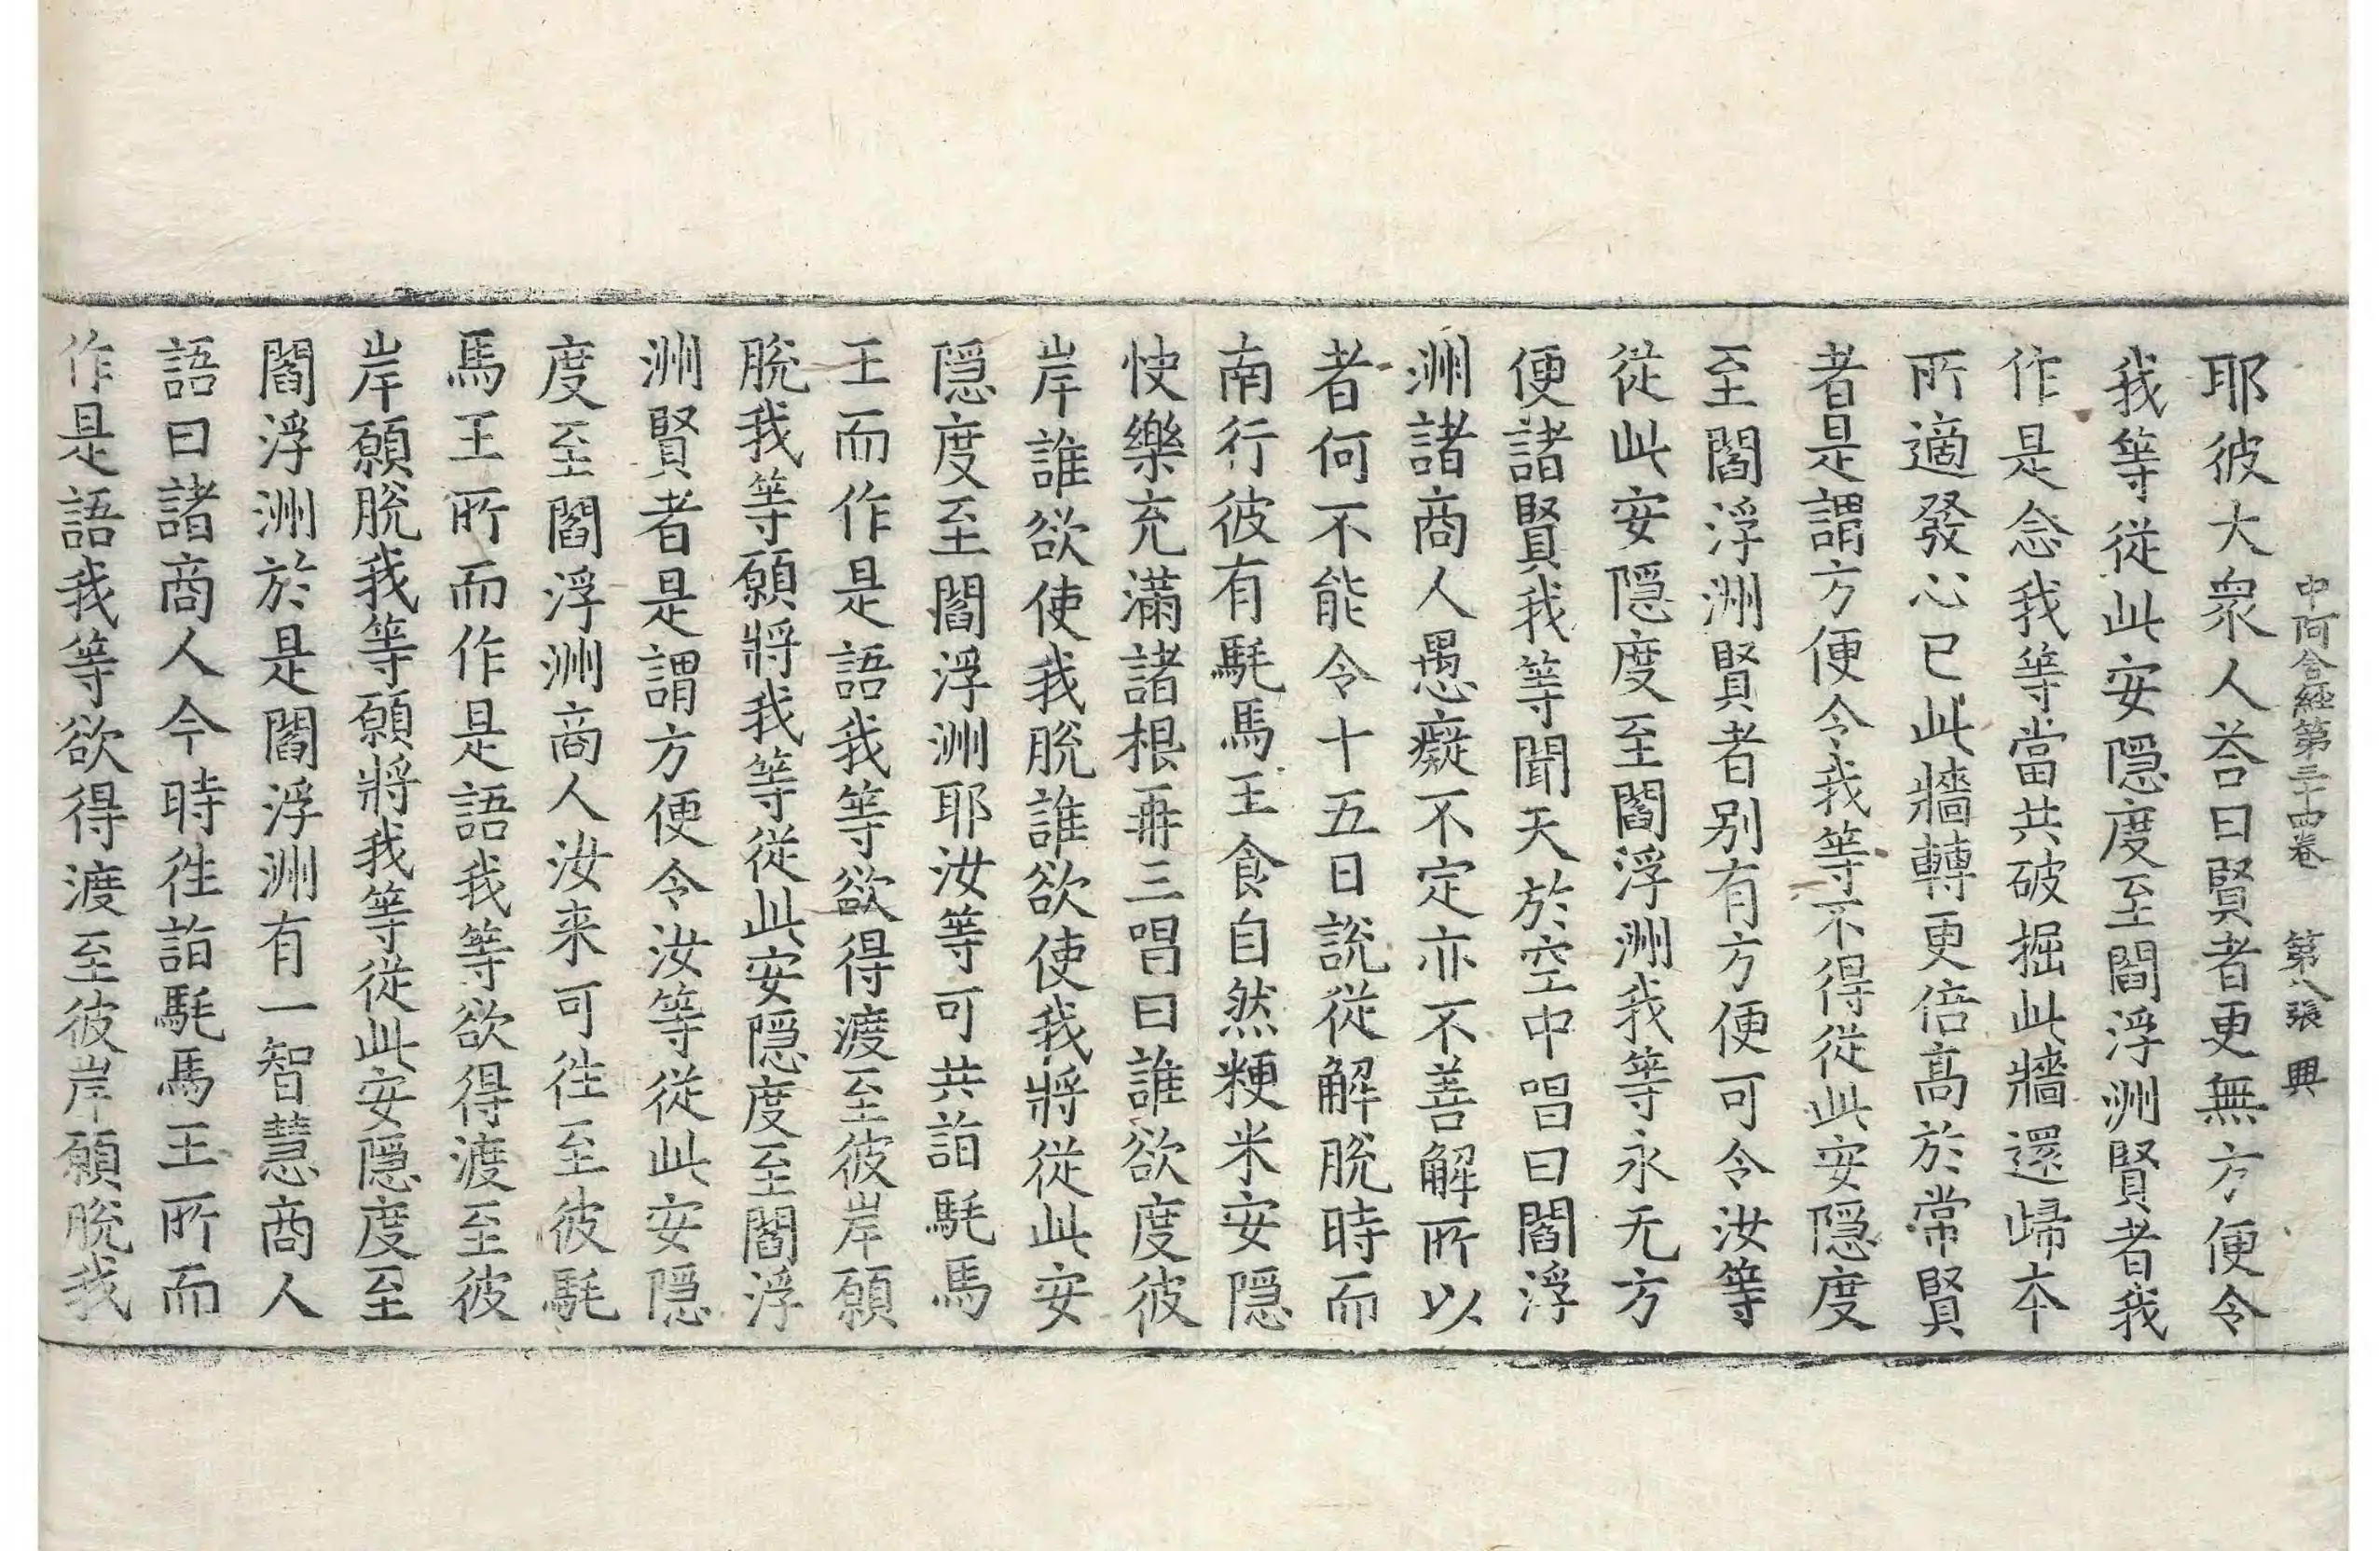 中阿含經第三十四卷 第八張 興
耶彼大衆人荅曰賢者更無方便令
我等從此安隱度至閻浮洲賢者我
作是念我等當共破掘此牆還歸本
所適發心已此牆轉更倍高於常賢
者是謂方便令我等不得從此安隱度
至閻浮洲賢者別有方便可令汝等
從此安隱度至閻浮洲我等永无方
便諸賢我等聞天於空中唱曰閻浮
洲諸商人愚癡不定亦不善解所以
者何不能令十五日說從解脫時而
南行彼有駹馬王食自然粳米安隱
快樂充滿諸根再三唱曰誰欲度彼
岸誰欲使我脫誰欲使我將從此安
隱度至閻浮洲耶汝等可共詣駹馬
王而作是語我等欲得渡至彼岸願
脫我等願將我等從此安隱度至閻浮
洲賢者是謂方便令汝等從此安隱
度至閻浮洲商人汝来可往至彼駹
馬王所而作是語我等欲得渡至彼
岸願脫我等願將我等從此安隱度至
閻浮洲於是閻浮洲有一智慧商人
語曰諸商人今時往詣駹馬王所而
作是語我等欲得渡至彼岸願脫我